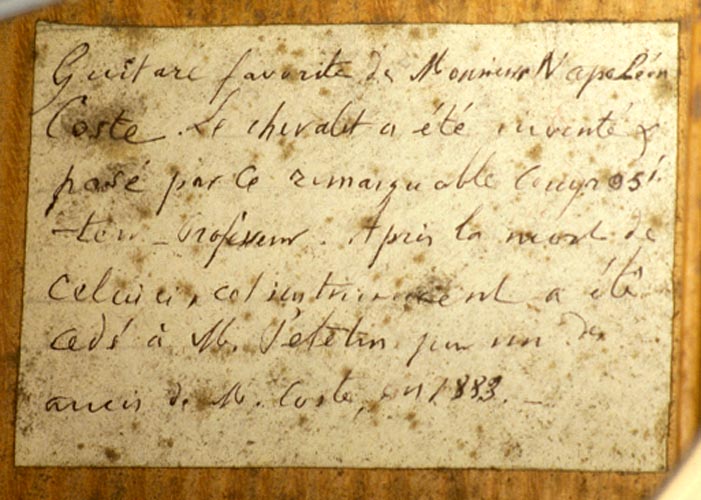 Guitare favorite de Monsieur Napoléon
Coste. Le chevalet a été inventé &
posé par ce remarquable composi-
-teur-Professeur. Après la mort de
celui ci, cet instrument a été
cédé à M. Pététin par un des
amis de M. Coste, en 1883. -